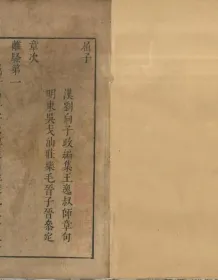 屈子
漢劉向子政編集王逸叔師章句
明東吳戈汕莊樂毛晉子晉叅定
章次
離騷第一